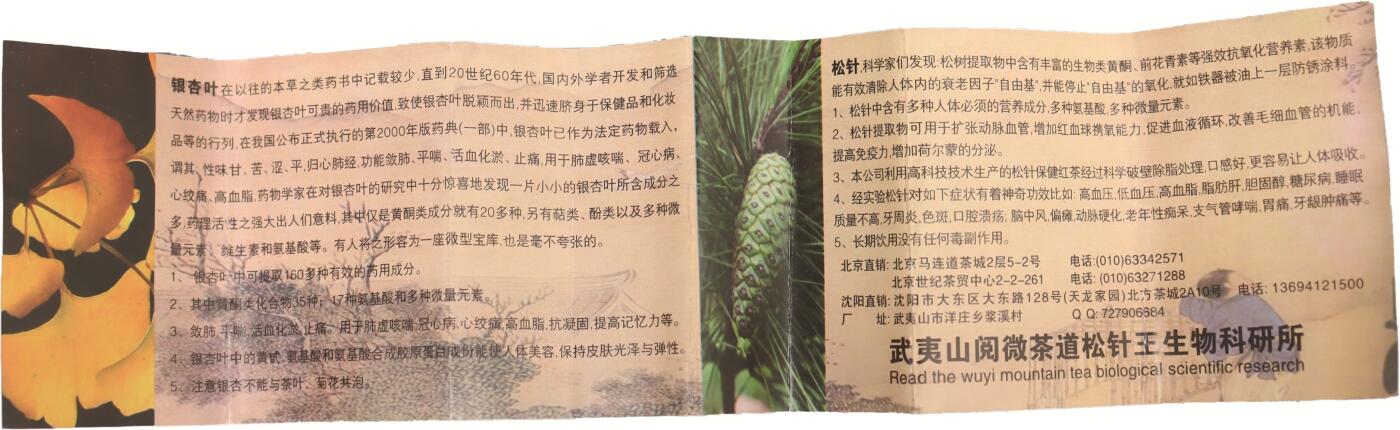 银杏叶在以往的本草之类药书中记载较少,直到20世纪60年代,国内外学者开发和筛选
天然药物时才发现银杏叶可贵的药用价值,致使银杏叶脱颖而出,并迅速跻身于保健品和化妆
品等的行列,在我国公布正式执行的第2000年版药典(一部)中,银杏叶已作为法定药物载入,
谓其、性味甘、苦、涩、平,归心肺经,功能敛肺、平喘、活血化淤、止痛,用于肺虚咳喘、冠心病、
心绞痛、高血脂,药物学家在对银杏叶的研究中十分惊喜地发现一片小小的银杏叶所含成分之
多,药理活性之强大出人们意料,其中仅是黄酮类成分就有20多种,另有萜类、酚类以及多种微
量元素、维生素和氨基酸等。有人将之形容为一座微型宝库,也是毫不夸张的。
1、银杏叶中可提取160多种有效的药用成分。
2、其中黄酮类化合物35种,17种氨基酸和多种微量元素。
3、敛肺,平喘,活血化淤,止痛。用于肺虚咳喘,冠心病,心绞痛,高血脂,抗凝固,提高记忆力等。
4、银杏叶中的黄甙,氨基酸和氨基酸合成胶原蛋白成份能使人体美容,保持皮肤光泽与弹性。
5、注意银杏不能与茶叶、菊花共泡。
松针,科学家们发现:松树提取物中含有丰富的生物类黄酮、前花青素等强效抗氧化营养素,该物质
能有效清除人体内的衰老因子"自由基",并能停止"自由基"的氧化,就如铁器被油上一层防锈涂料。
1、松针中含有多种人体必须的营养成分,多种氨基酸,多种微量元素。
2、松针提取物可用于扩张动脉血管,增加红血球携氧能力,促进血液循环,改善毛细血管的机能,
提高免疫力,增加荷尔蒙的分泌。
3、本公司利用高科技技术生产的松针保健红茶经过科学破壁除脂处理,口感好,更容易让人体吸收。
4、经实验松针对如下症状有着神奇功效比如:高血压,低血压,高血脂,脂肪肝,胆固醇,糖尿病,睡眠
质量不高,牙周炎,色斑,口腔溃疡;脑中风,偏瘫,动脉硬化,老年性痴呆,支气管哮喘,胃痛,牙龈肿痛等。
5、长期饮用没有任何毒副作用。
北京直销:北京马连道茶城2层5-2号 电话:(010)63342571
北京世纪茶贸中心2-2-261 电话:(010)63271288
沈阳直销:沈阳市大东区大东路128号(天龙家园)北方茶城2A10号 电话:13694121500
厂 址:武夷山市洋庄乡浆溪村 Q Q:727906684
武夷山阅微茶道松针王生物科研所
Read the wuyi mountain tea biological scientific research